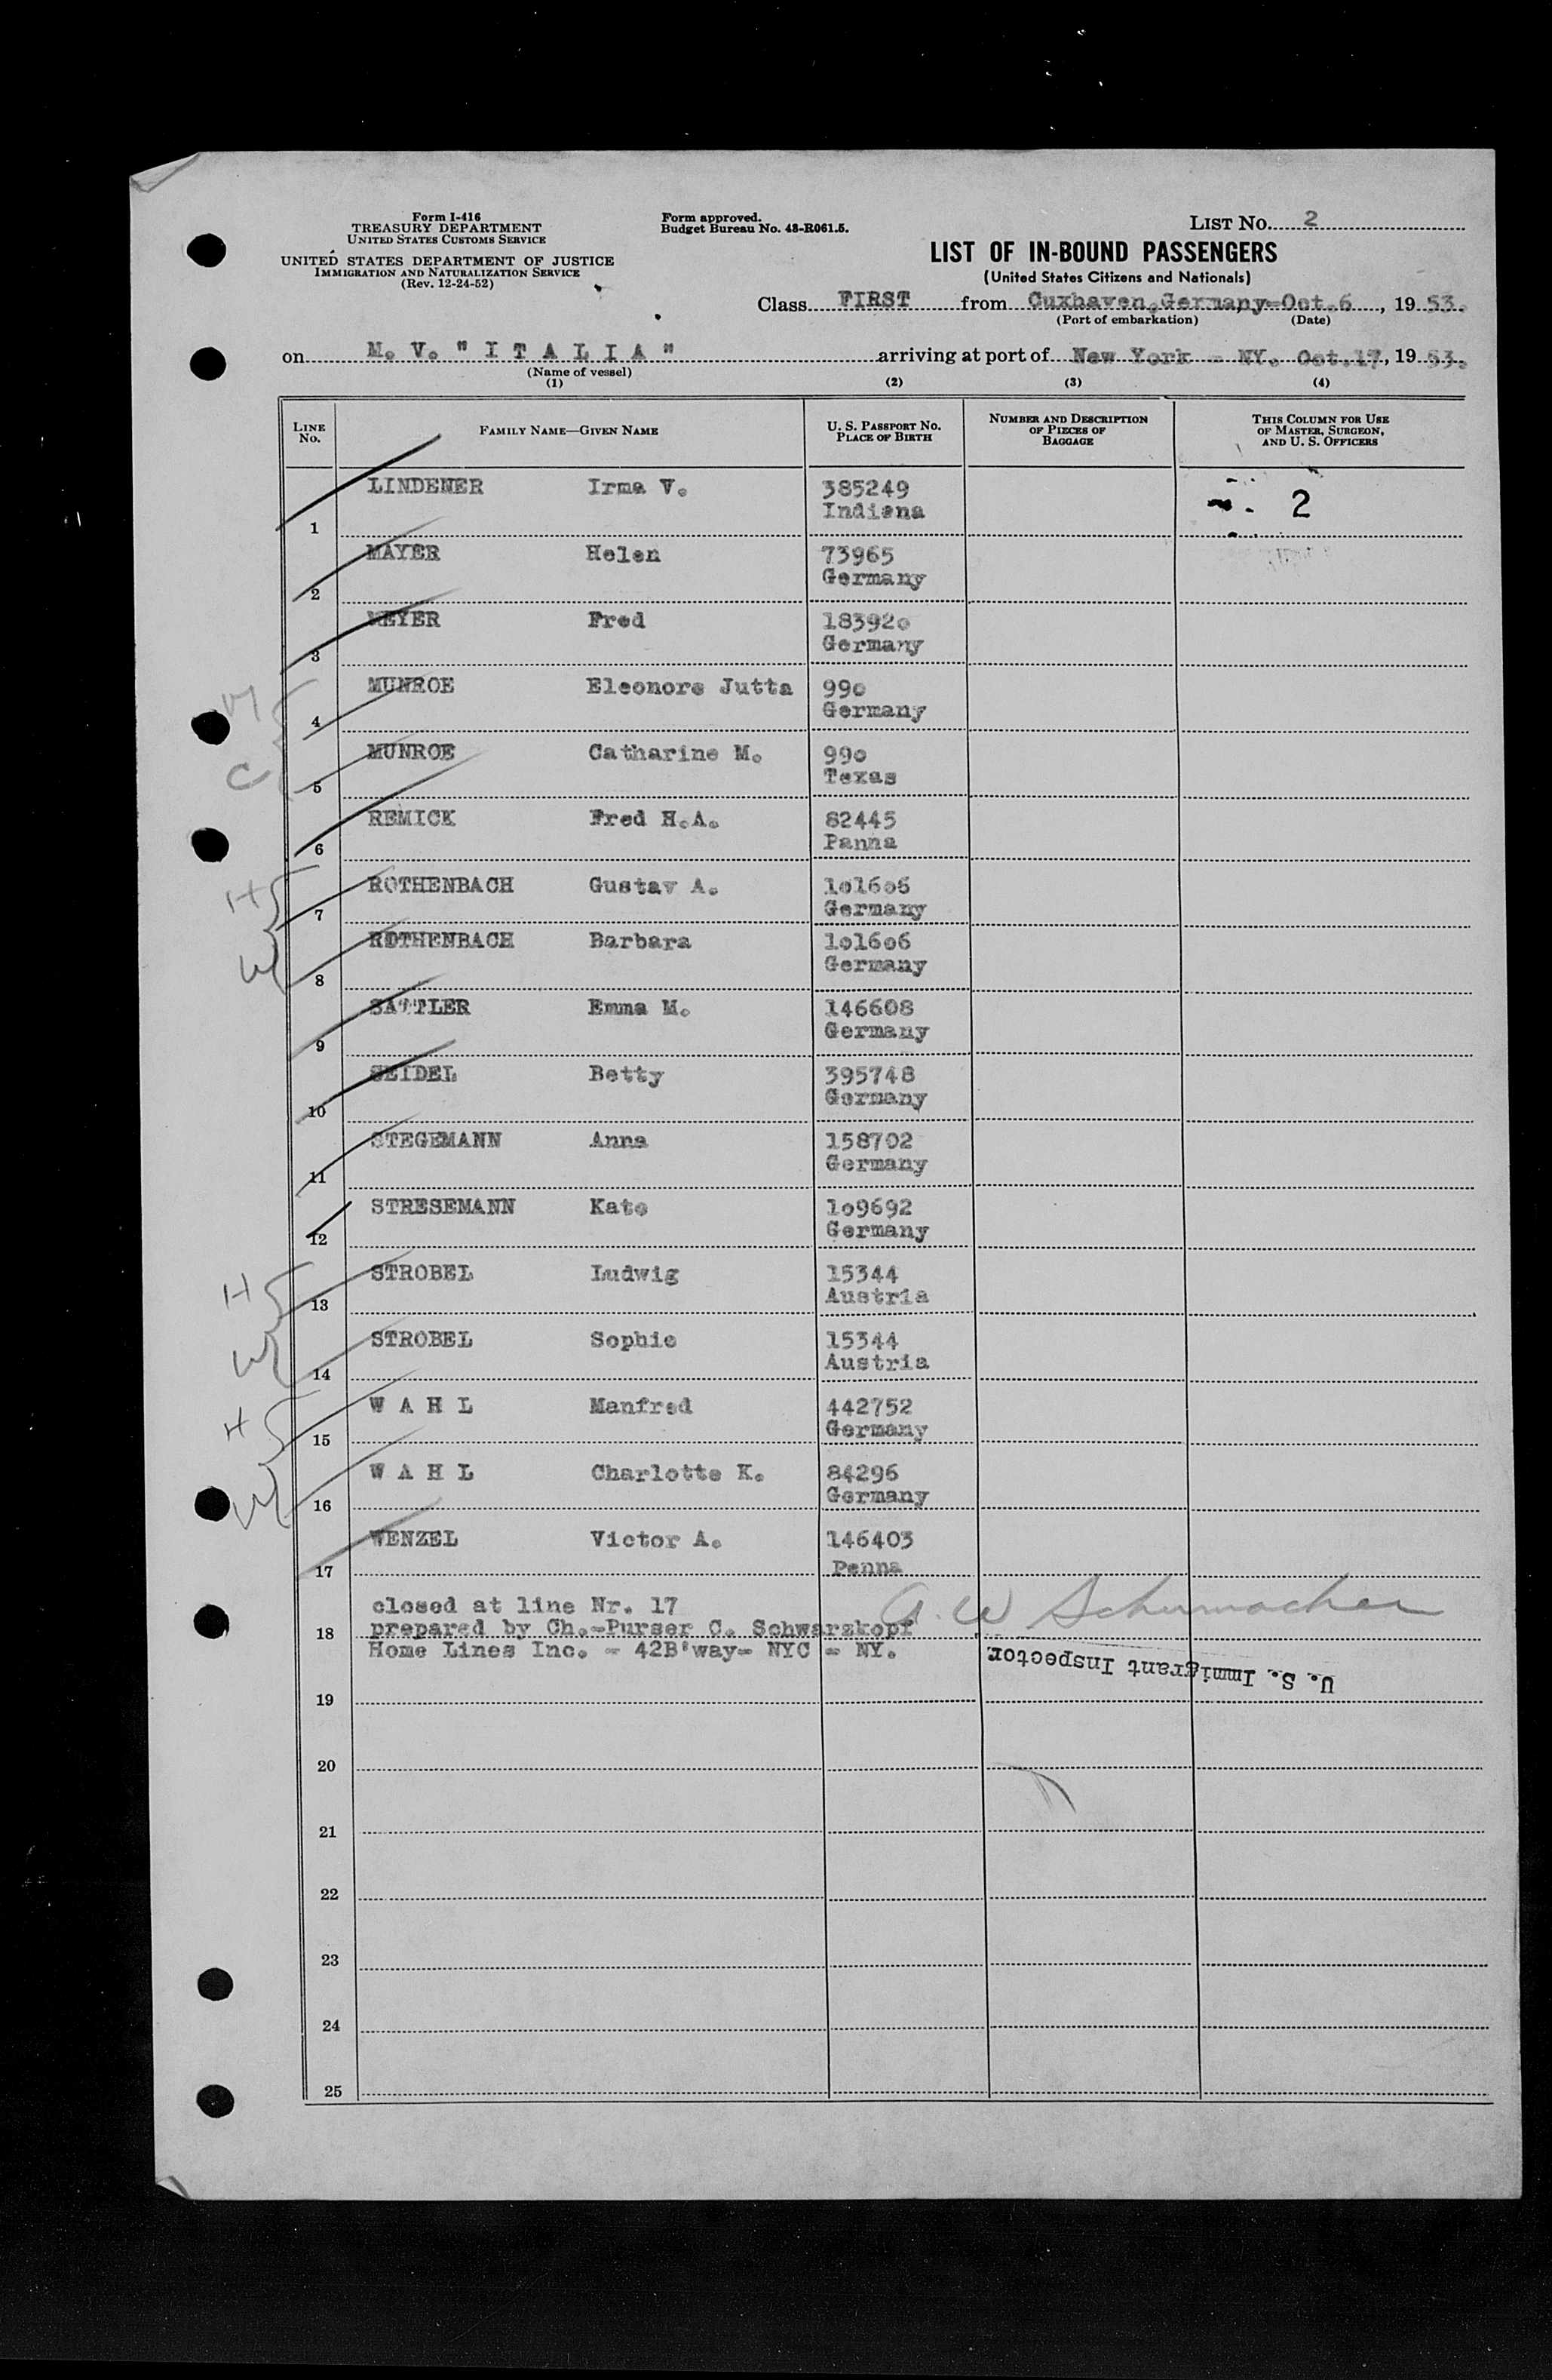 Form I-416
TREASURY DEPARTMENT
UNITED STATES CUSTOMS SERVICE
UNITED STATES DEPARTMENT OF JUSTICE
IMMIGRATION AND NATURALIZATION SERVICE
(Rev. 12-24-52)
Form approved.
Budget Bureau No. 43-R061.5.
LIST No. 2
LIST OF IN-BOUND PASSENGERS
(United States Citizens and Nationals)
Class FIRST from Cuxhaven,Germany-Oct.6, 1953.
(Port of embarkation) (Date)
on M. V. " I T A L I A " arriving at port of New York - NY. Oct.17, 1953.
(Name of vessel)
(1) (2) (3) (4)
LINE No. FAMILY NAME—GIVEN NAME U. S. PASSPORT No. PLACE OF BIRTH NUMBER AND DESCRIPTION OF PIECES OF BAGGAGE THIS COLUMN FOR USE OF MASTER, SURGEON, AND U. S. OFFICERS
1 LINDENER Irma V. 385249 2
Indiana
2 MAYER Helen 73965
Germany
3 MEYER Fred 18392o
Germany
M
4 MUNROE Eleonore Jutta 99o
Germany
C
5 MUNROE Catharine M. 99o
Texas
6 REMICK Fred H.A. 82445
Panna
H
7 ROTHENBACH Gustav A. 1o16o6
Germany
W
8 ROTHENBACH Barbara 1o16o6
Germany
9 SATTLER Emma M. 146608
Germany
10 SEIDEL Betty 395748
Germany
11 STEGEMANN Anna 158702
Germany
12 STRESEMANN Kate 1o9692
Germany
H
13 STROBEL Ludwig 15344
Austria
W
14 STROBEL Sophie 15344
Austria
H
15 W A H L Manfred 442752
Germany
W
16 W A H L Charlotte K. 84296
Germany
17 WENZEL Victor A. 146403
Penna
closed at line Nr. 17
A. W Schumacher
18 prepared by Ch.-Purser C. Schwarzkopf
Home Lines Inc. - 42B'way- NYC - NY.
U. S. Immigrant Inspector
19
20
21
22
23
24
25